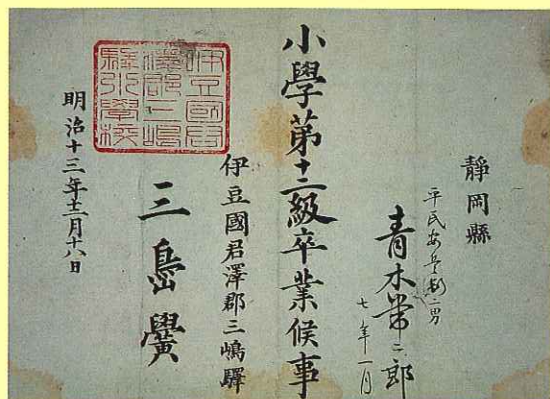 靜岡縣
平民安兵衛二男
青木常二郎
七年一月
小學第十二級卒業候事
伊豆國君澤郡三嶋驛
三島黌
明治十三年十二月十八日
伊豆國君
澤郡三嶋
驛小學校